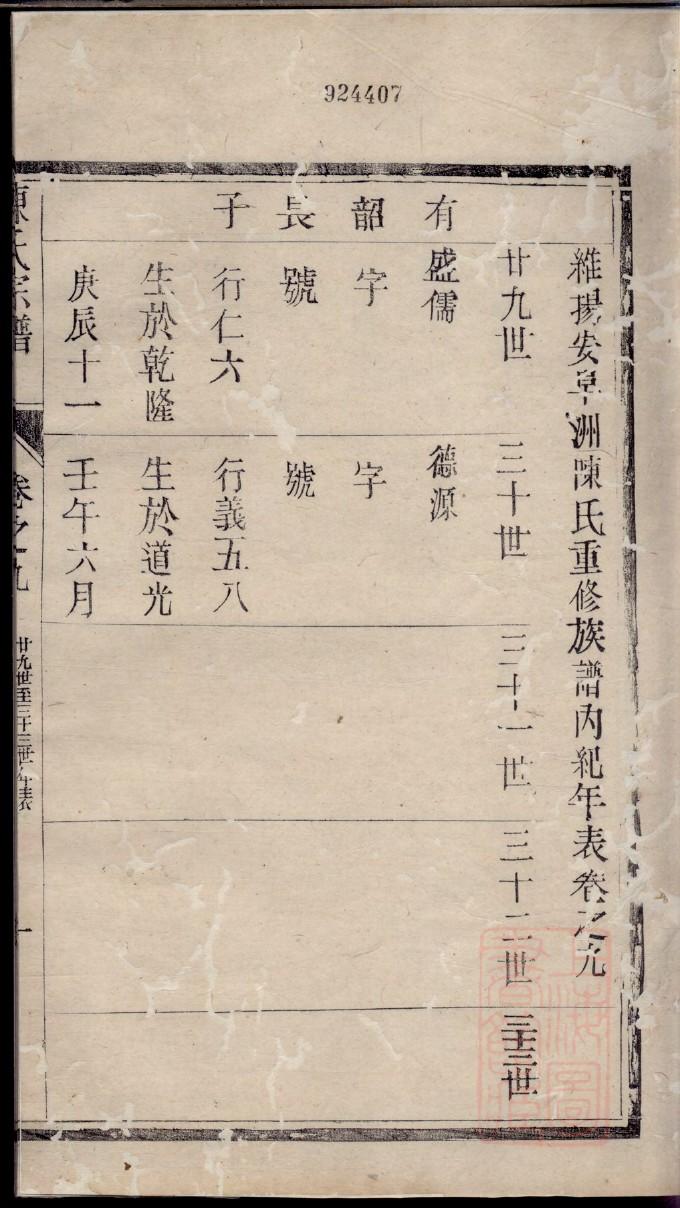 924407
維揚安阜洲陳氏重修族譜內紀年表卷之九
廿九世
三十世
三十一世
三十二世
三十三世
有韶長子
盛儒
字
號
行仁六
生於乾隆
庚辰十一
德源
字
號
行義五八
生於道光
壬午六月
陳氏宗譜
卷之九
廿九世至三十三世年表
一